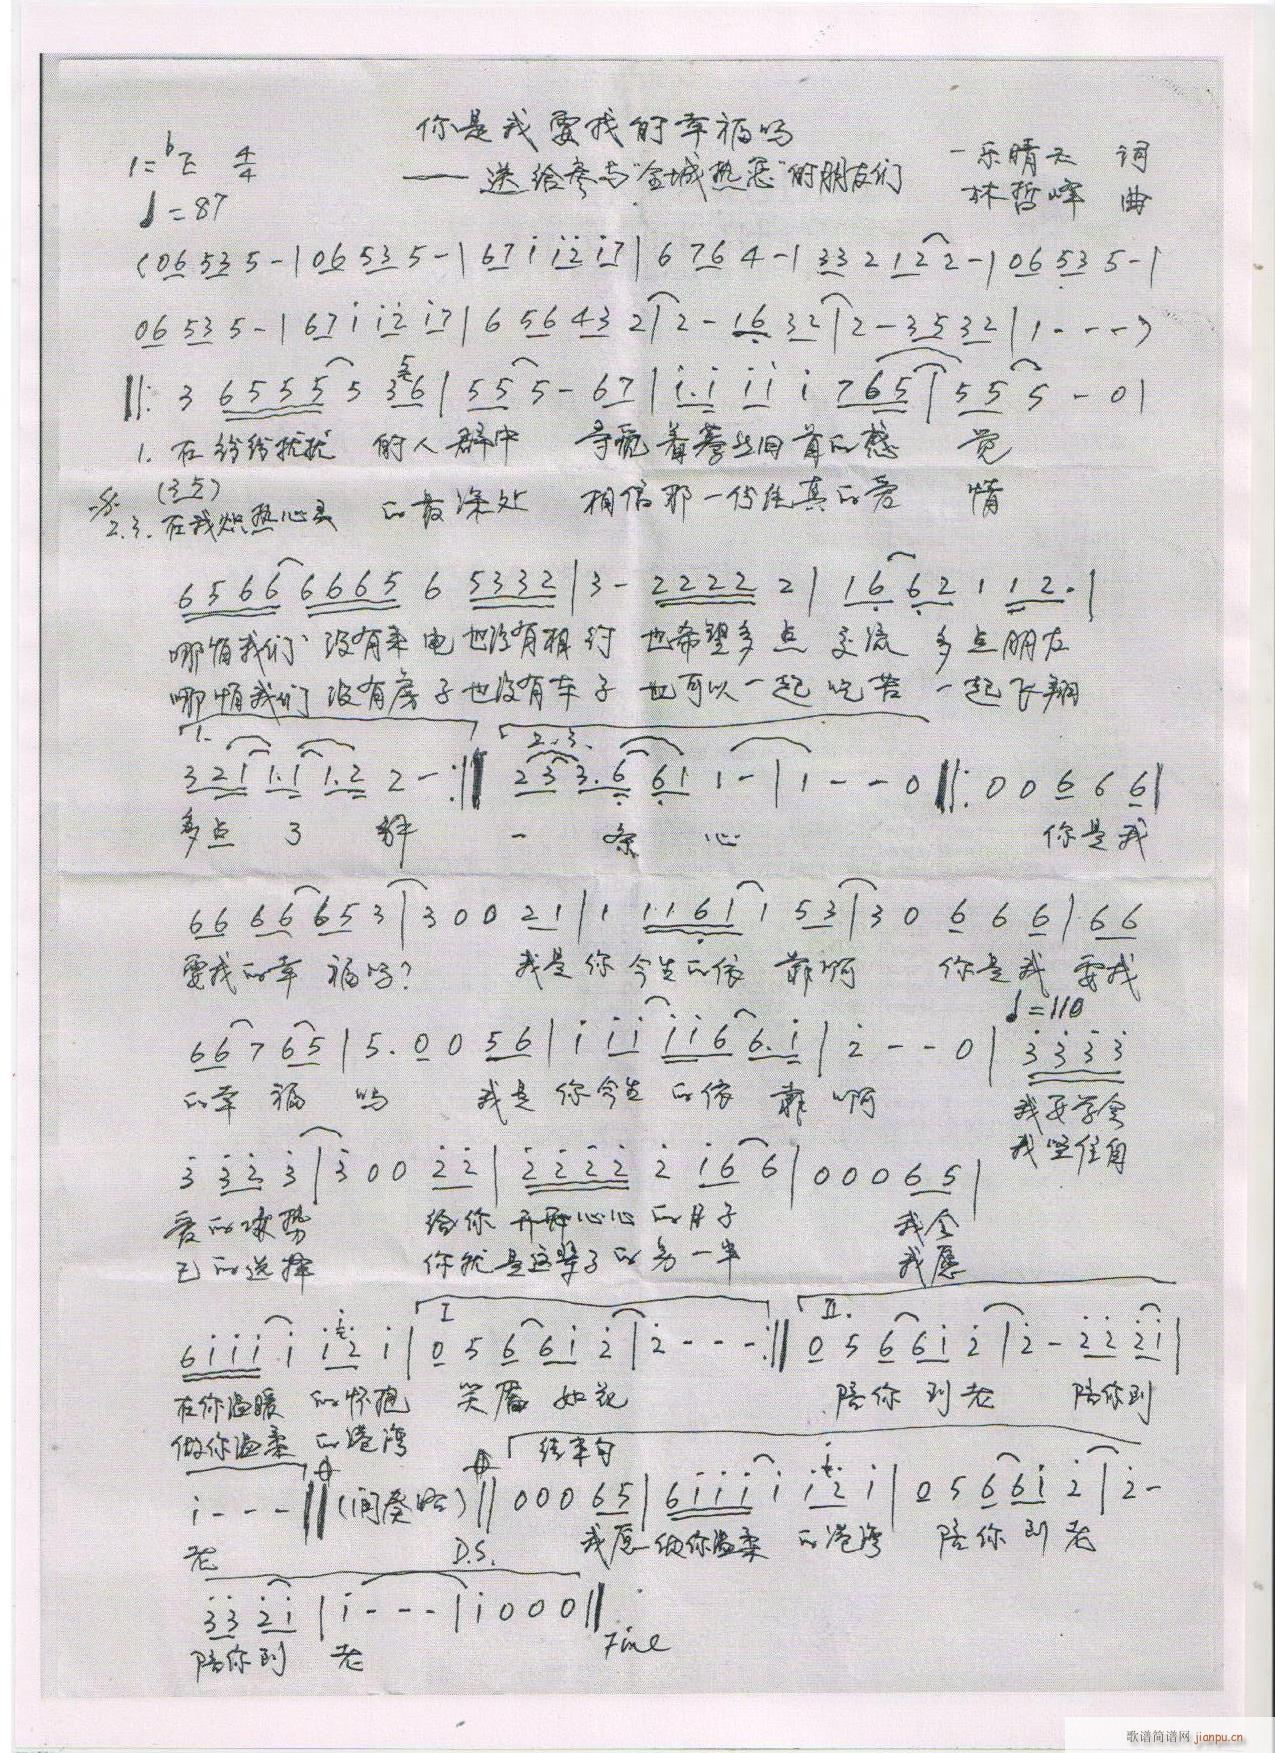 你是我要找的幸福吗
1=♭E 4/4
——送给参与"全城热恋"的朋友们
一乐晴天 词
♩=87
林哲峰 曲
(06 53 5 - | 06 53 5 - | 67 i i2 i7 | 6 76 4 - | 33 2 122 - | 06 53 5 - |
06 53 5 - | 67 i i2 i7 | 6 56 43 2 | 2 - 16 32 | 2 - 35 32 | 1 - - - )
‖: 3 6555 5 36 | 55 5 - 67 | i.i ii i 765 | 55 5 - 0 |
1. 在纷纷扰扰 的人群中 寻觅着 的感 觉
2.3. 在我炽热心灵 的最深处 相信那一份纯真的爱 情
6566 6665 6 5332 | 3 - 2222 2 | 16 62 1 12. |
哪怕我们 没有来电也没有相约 也希望多点 交流 多点朋友
哪怕我们没有房子也没有车子 也可以一起吃苦 一起飞翔
1.
2.3.
321 1.1 1.2 2 - :‖ 23 3.6 61 1 - | 1 - - 0 ‖: 0 0 6 6 6 |
多点了解 一条心 你是我
66 66 653 | 3 0 0 21 | 1 1161 1 53 | 3 0 6 6 6 | 66
要找的幸福吗? 我是你 今生的依靠啊 你是我 要找
♩=110
66 7 65 | 5. 0 0 56 | i ii ii6 6.i | 2 - - 0 | 3333
的幸福 吗 我是你今生的依靠啊 我要学会
我坚信自
3 33 3 | 3 0 0 22 | 2222 2 i6 6 | 0 0 0 65 |
爱的姿势 给你开开心心的日子 我会
己的选择 你就是这辈子的另一半 我愿
I
II.
6iii i i2 i | 0 5 6 6i 2 | 2 - - - :‖ 0 5 6 6i 2 | 2 - 22 2i |
在你温暖 的怀抱 笑靥如花 陪你到老 陪你到
做你温柔 的港湾
结束句
i - - - ‖ (间奏略) ‖ 0 0 0 65 | 6iii i i2 i | 0 5 6 6i 2 | 2 -
老 D.S. 我愿 做你温柔 的港湾 陪你到老
33 2i | i - - - | i 0 0 0 ‖
陪你到 老 Fine
歌谱简谱网 jianpu.cn